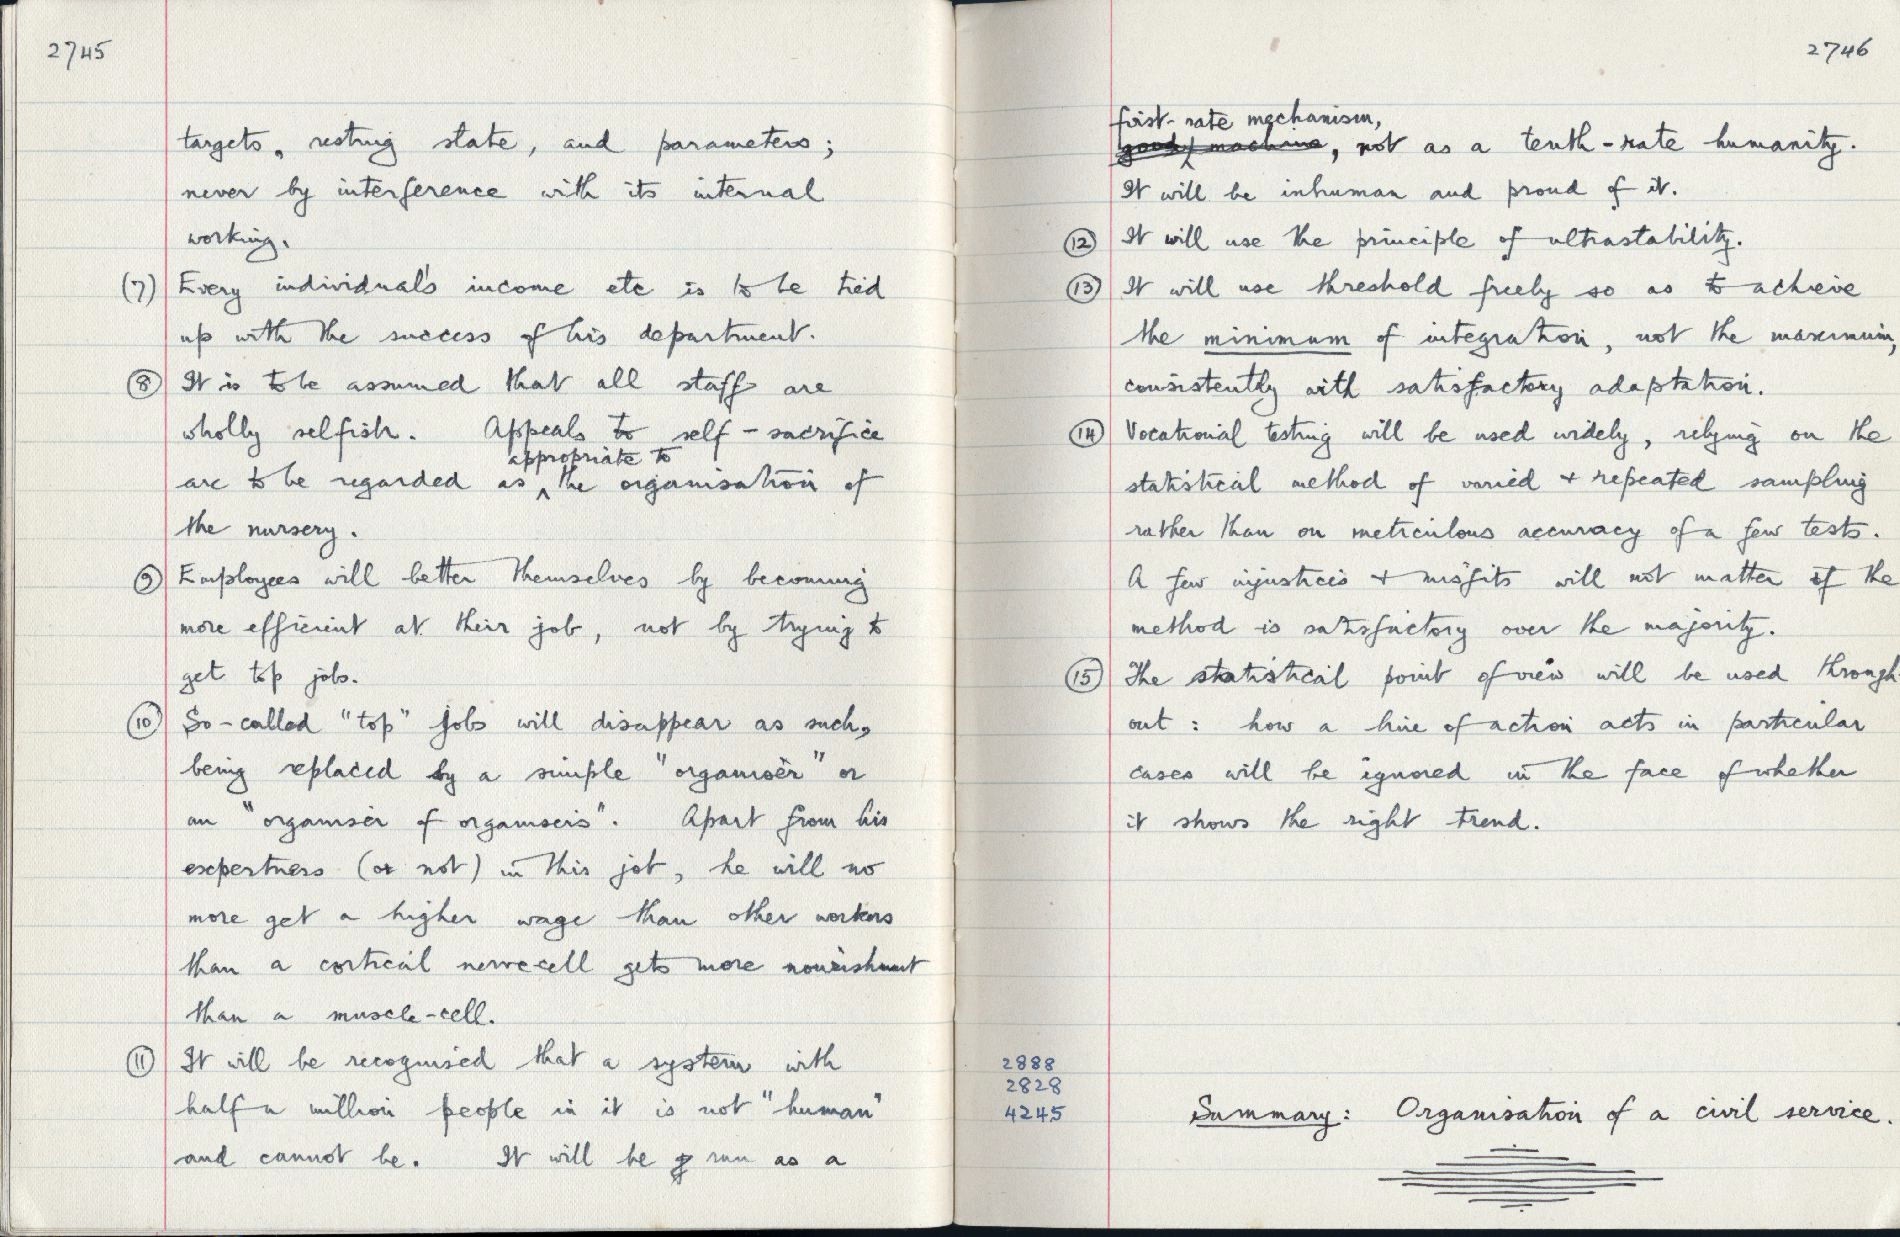 2745
targets, resting state, and parameters;
never by interference with its internal
working.
(7) Every individual's income etc is to be tied
up with the success of his department.
(8) It is to be assumed that all staff are
wholly selfish. Appeals to self-sacrifice
appropriate to
are to be regarded as ^ the organisation of
the nursery.
(9) Employees will better themselves by becoming
more efficient at their job, not by trying to
get top jobs.
(10) So-called "top" jobs will disappear as such,
being replaced by a simple "organiser" or
an "organiser of organisers". Apart from his
expertness (or not) in this job, he will no
more get a higher wage than other workers
than a cortical nerve-cell gets more nourishment
than a muscle-cell.
(11) It will be recognised that a system with
half a million people in it is not "human"
and cannot be. It will be run as a
2746
first-rate mechanism,
good machine, not as a tenth-rate humanity.
It will be inhuman and proud of it.
(12) It will use the principle of ultrastability.
(13) It will use threshold freely so as to achieve
the minimum of integration, not the maximum,
consistently with satisfactory adaptation.
(14) Vocational testing will be used widely, relying on the
statistical method of varied + repeated sampling
rather than on meticulous accuracy of a few tests.
A few injustices + misfits will not matter if the
method is satisfactory over the majority.
(15) The statistical point of view will be used through-
out: how a line of action acts in particular
cases will be ignored in the face of whether
it shows the right trend.
2888
2828
4245
Summary: Organisation of a civil service.